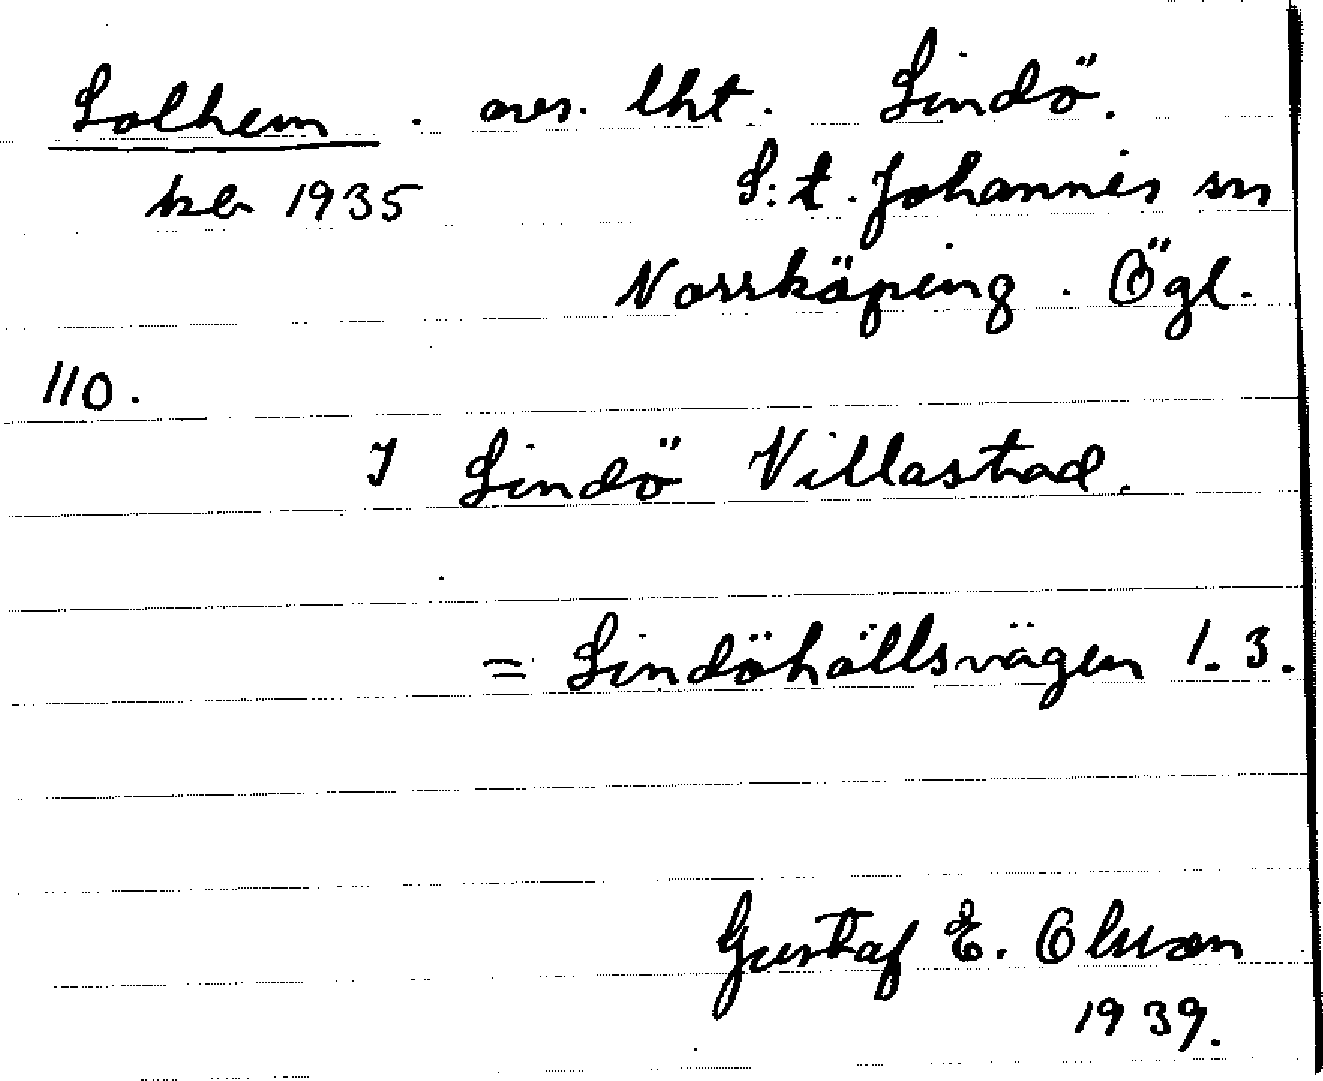 Solhem . avs. lht. Lindö.
ker 1935 S:t. Johannes sn
Norrköping. Ögl.
110.
I Lindö Villastad.
= Lindöhällsvägen 1. 3.
Gustaf E. Olsson
1939.